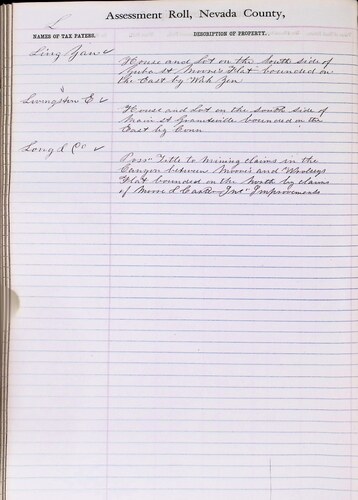 L
Assessment Roll, Nevada County,
NAMES OF TAX PAYERS.
DESCRIPTION OF PROPERTY.
Ling Yan ✓
House and Lot on the South side of
Yuba St Moore's Flat bounded on
the East by Wah Yen
Livingston E ✓
House and Lot on the South side of
Main St Graniteville bounded on the
East by Conn
Long & Co ✓
Poss Title to Mining claims in the
Canyon between Moore's and
Flat bounded on the North by claims
of Moore & Improvements